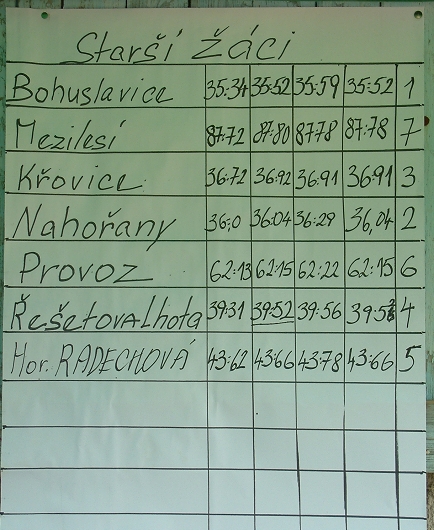 Starší žáci
Bohuslavice 35:34 35:52 35:59 35:52 1
Mezilesí 87:72 87:80 87:78 87:78 7
Křovice 36:72 36:92 36:91 36:91 3
Nahořany 36;0 36:04 36:29 36,04 2
Provoz 62:13 62:15 62:22 62:15 6
Řešetova Lhota 39:31 39:52 39:56 39:52 4
Hor. RADECHOVÁ 43:62 43:66 43:78 43:66 5